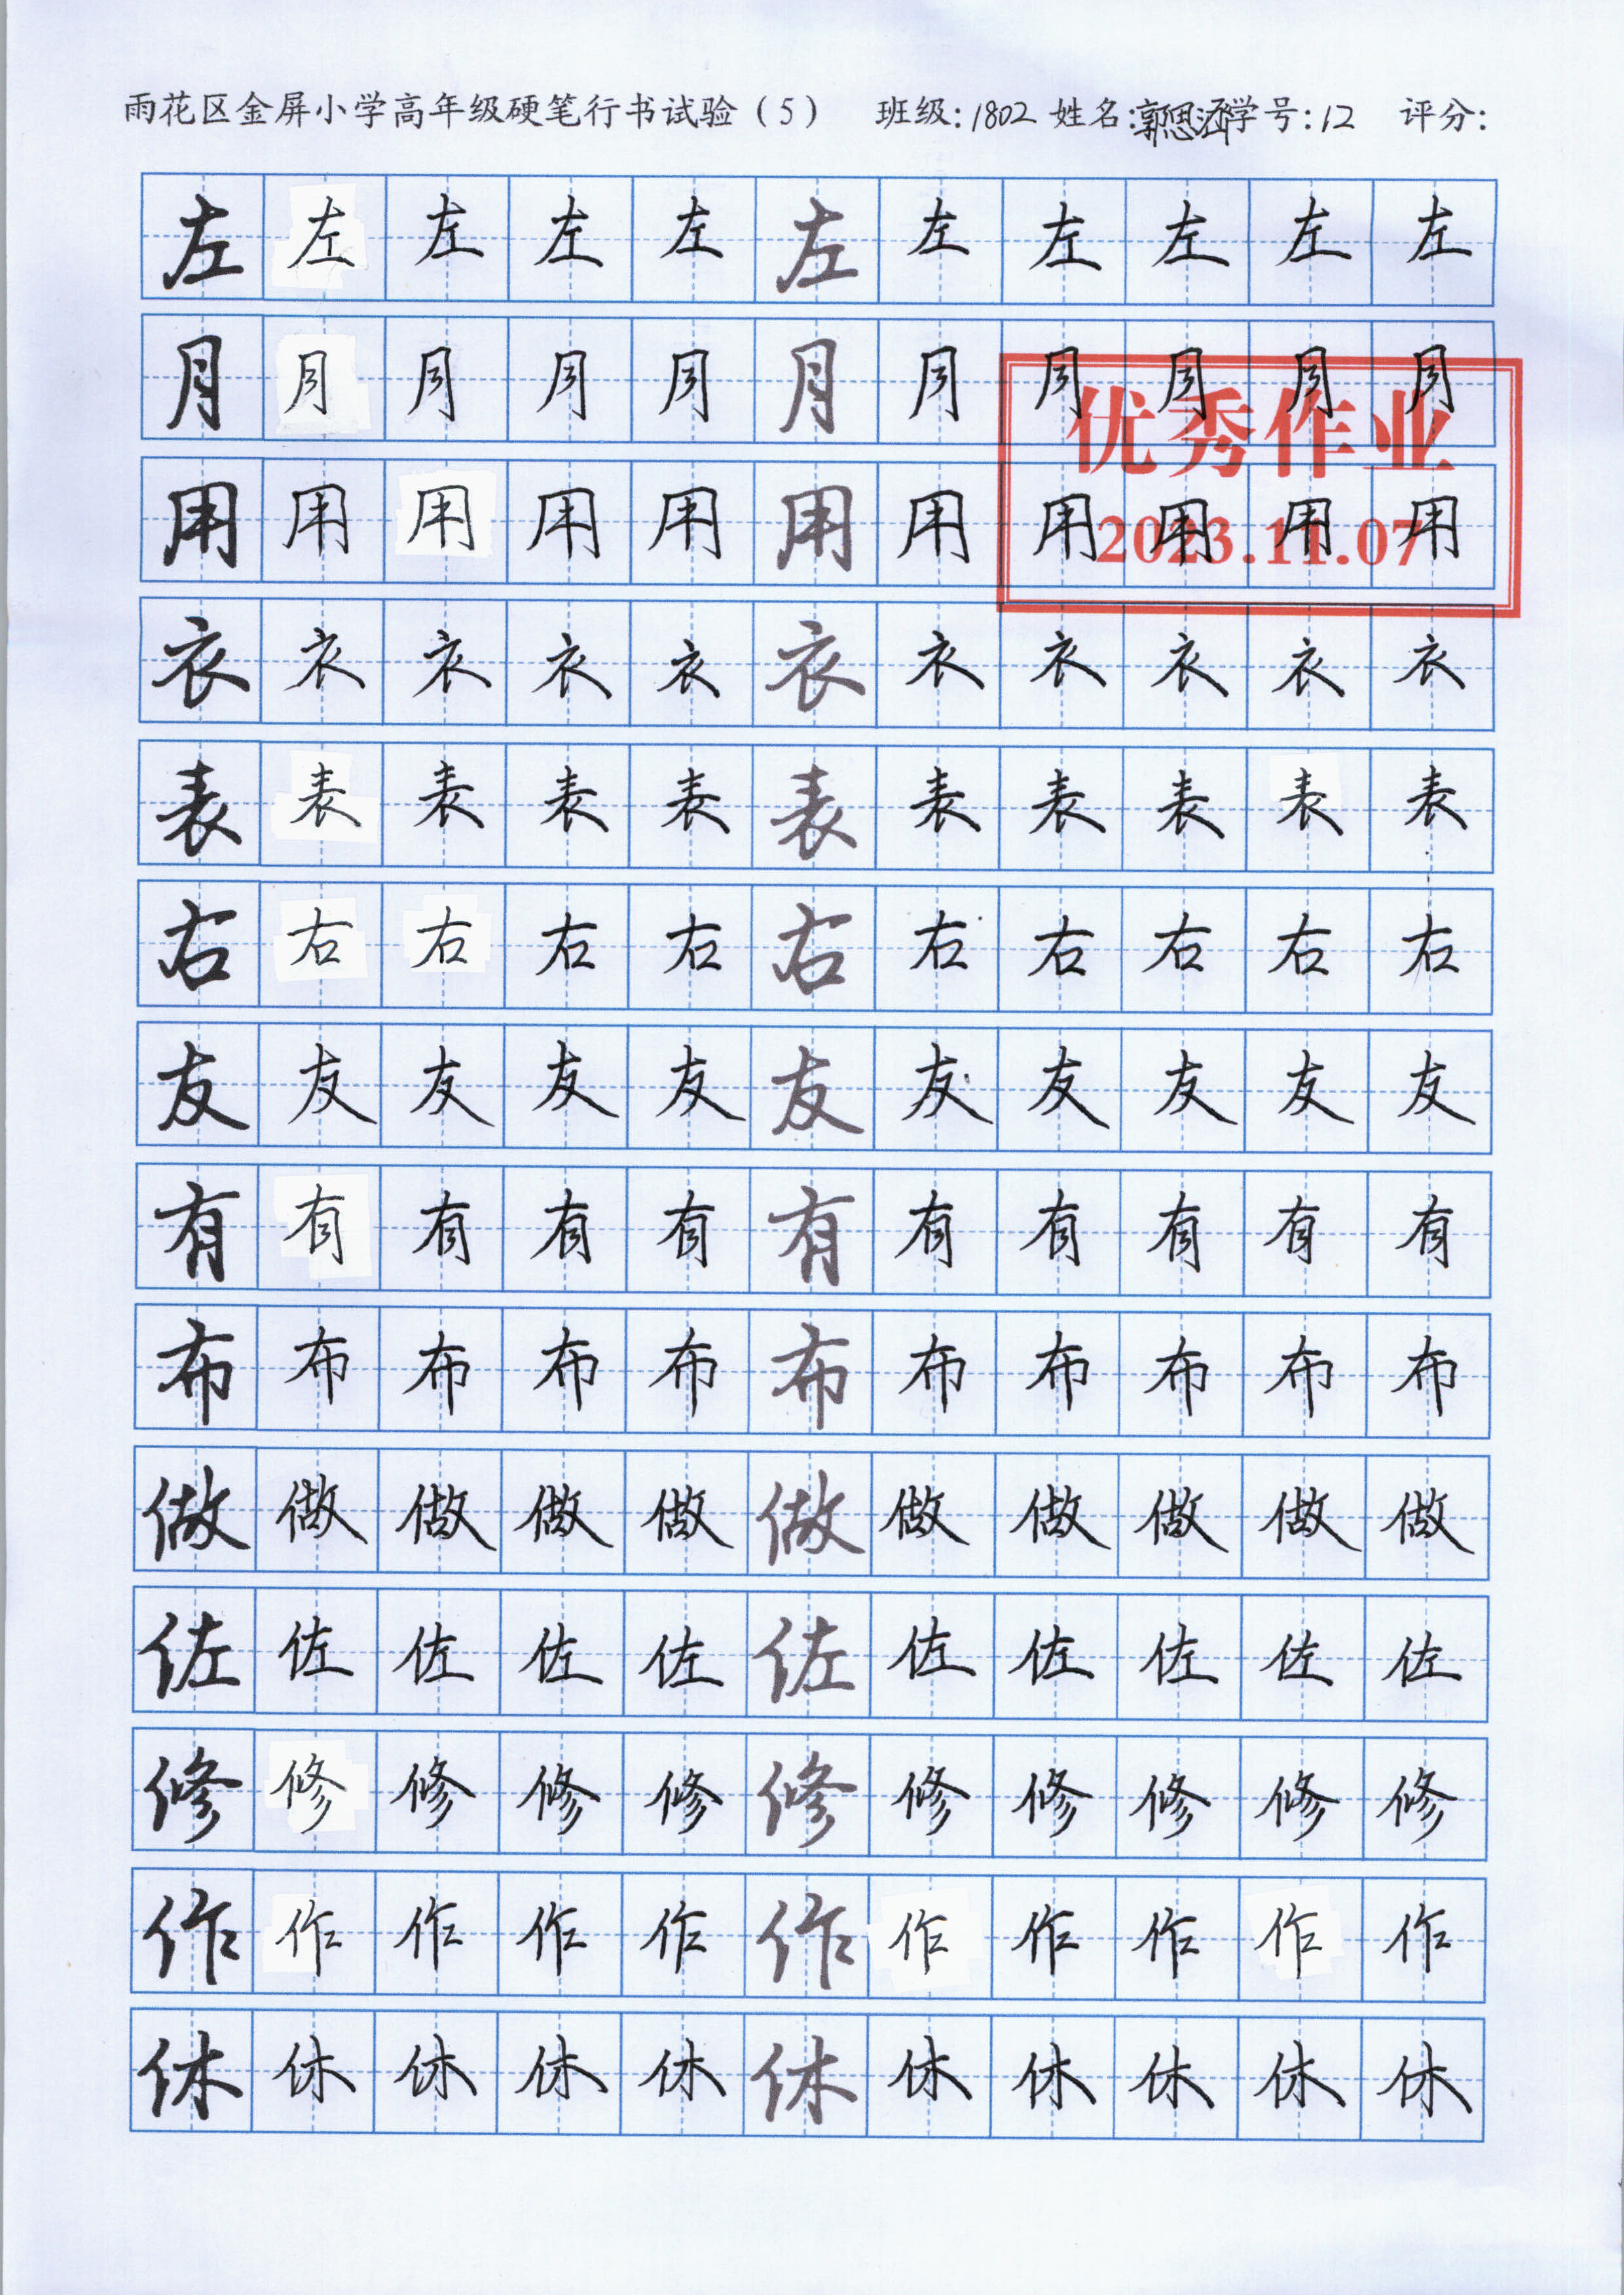 雨花区金屏小学高年级硬笔行书试验（5） 班级:1802 姓名:郭思涵 学号:12 评分:
左左左左左左左左左左左
月月月月月月月月月月月
优秀作业
用用用用用用用用用用用
2023.11.07
衣衣衣衣衣衣衣衣衣衣衣
表表表表表表表表表表表
右右右右右右右右右右右
友友友友友友友友友友友
有有有有有有有有有有有
布布布布布布布布布布布
做做做做做做做做做做做
佐佐佐佐佐佐佐佐佐佐佐
修修修修修修修修修修修
作作作作作作作作作作作
休休休休休休休休休休休